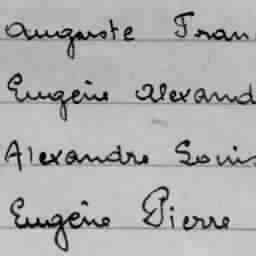 Auguste Fran
Eugène Alexand
Alexandre Louis
Eugène Pierre